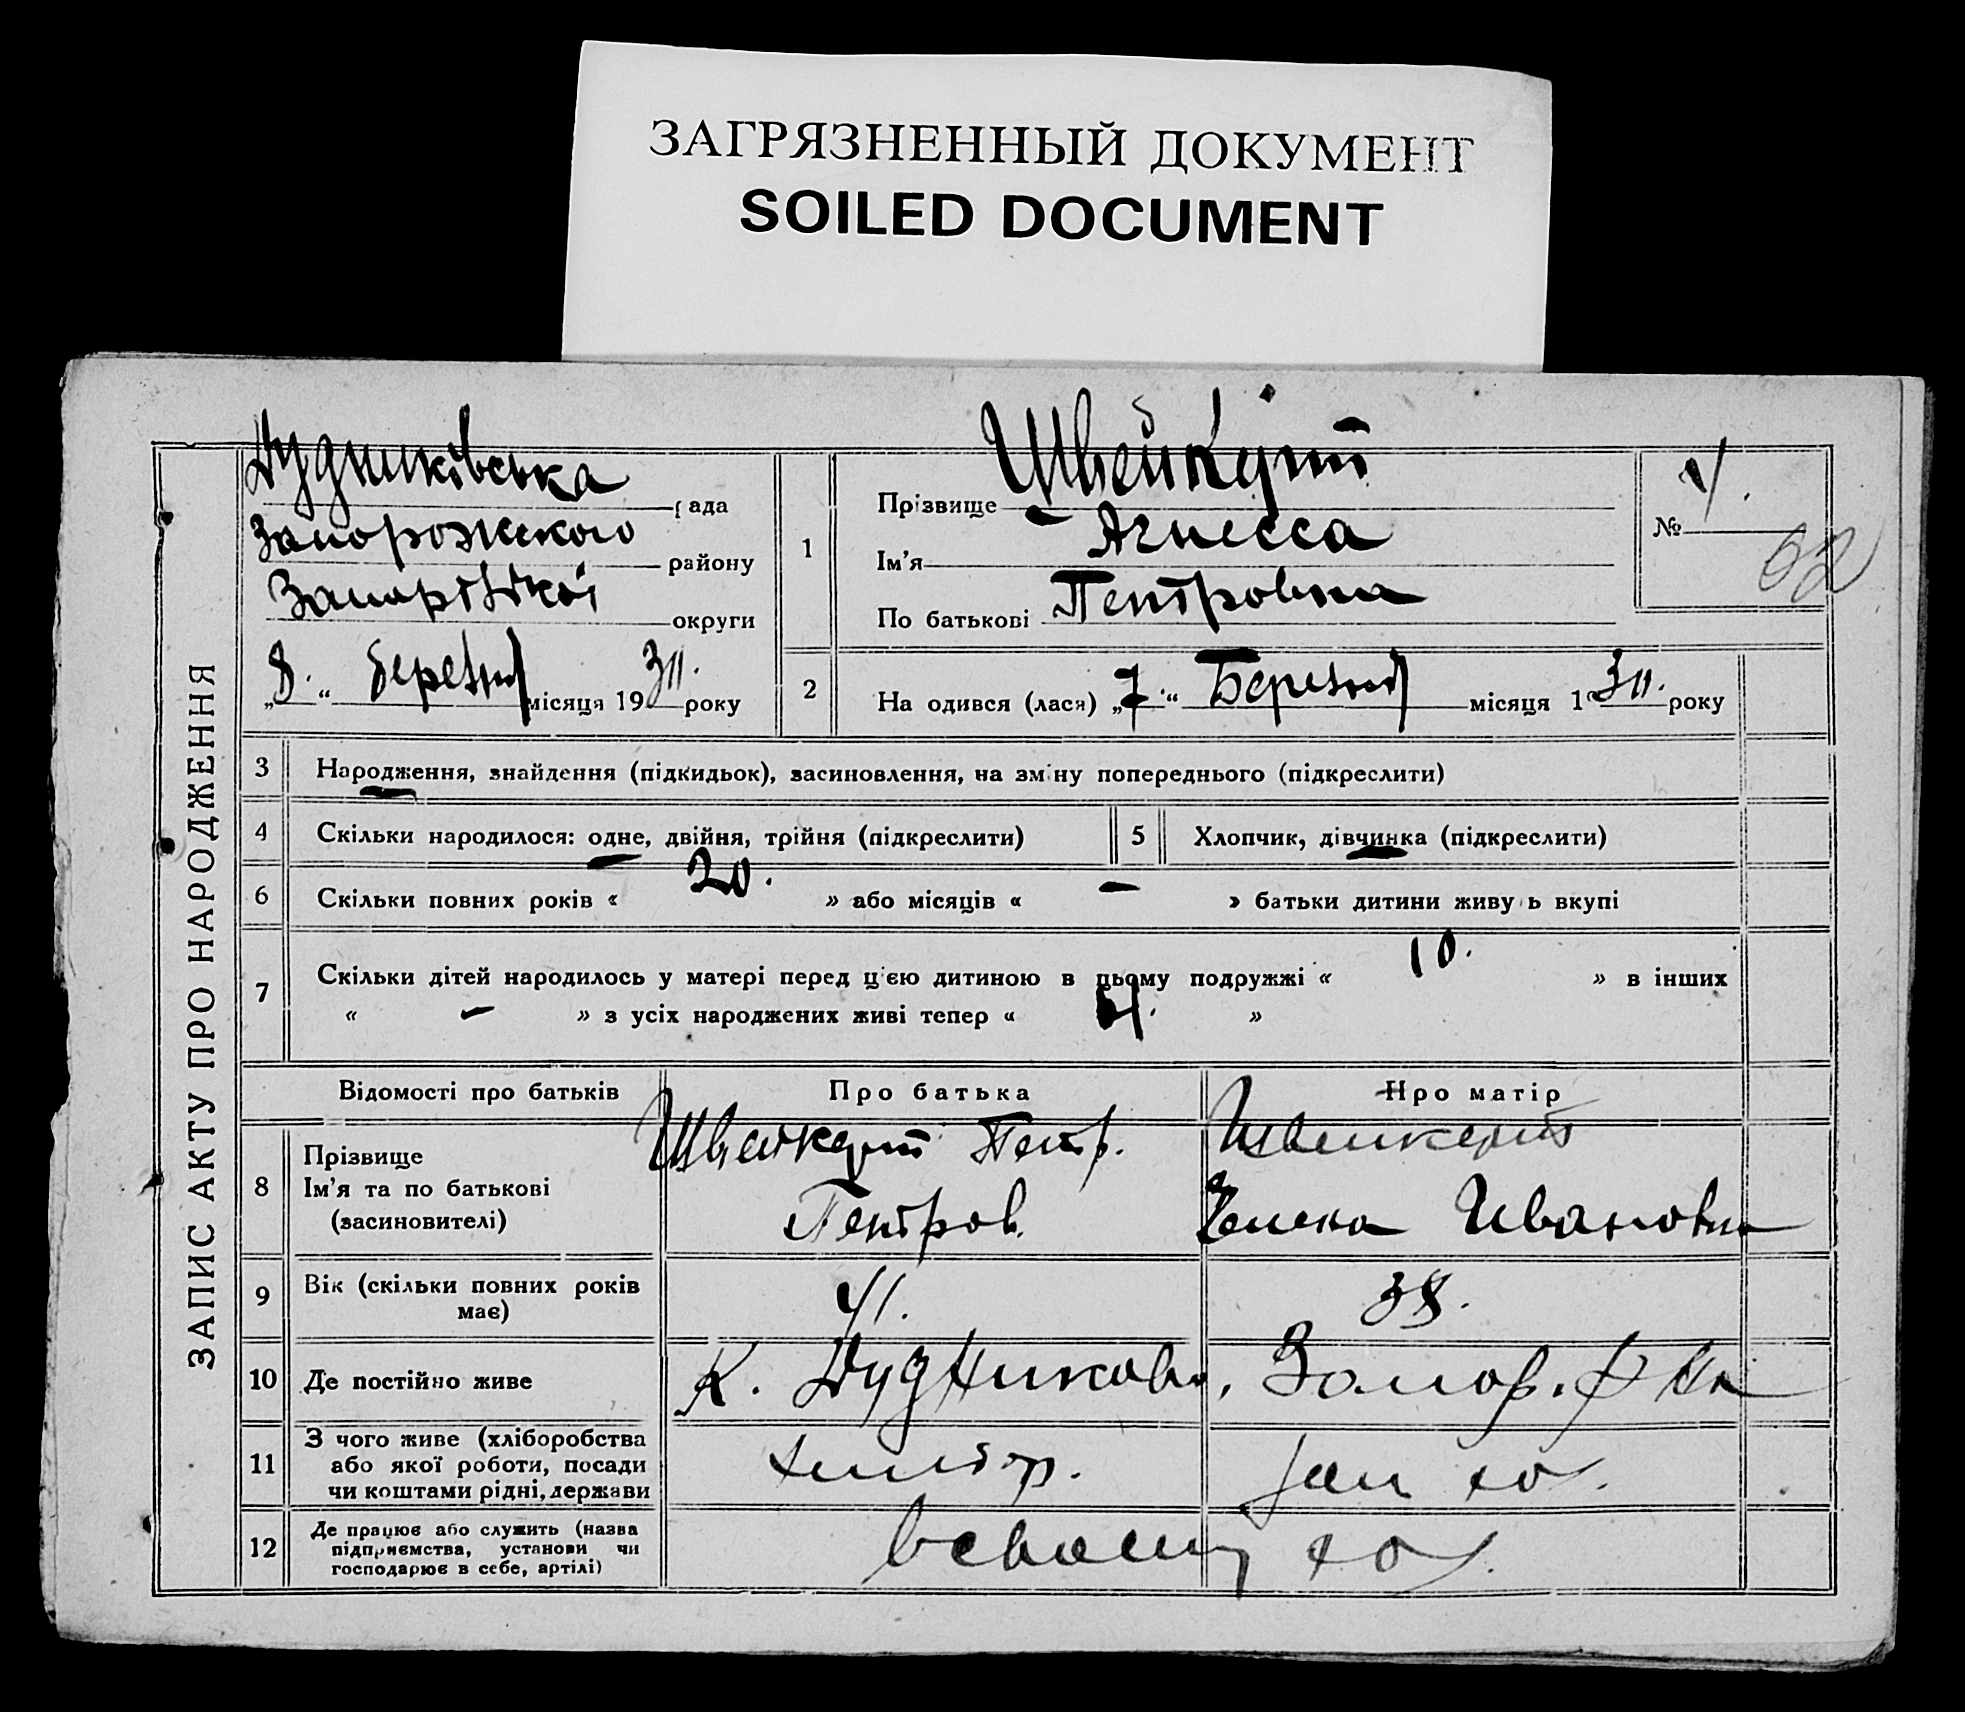 ЗАГРЯЗНЕННЫЙ ДОКУМЕНТ
SOILED DOCUMENT
ЗАПИС АКТУ ПРО НАРОДЖЕННЯ
Дудниківська рада
Запорожского району
округи
„8.“ березня місяця 1930. року
1
Прізвище
Ім'я Агнесса
По батькові Петровна
№
2
На одився (лася) „7.“ Березня місяця 1930. року
3 Народження, знайдення (підкидьок), засиновлення, на зміну попереднього (підкреслити)
4 Скільки народилося: одне, двійня, трійня (підкреслити)
5 Хлопчик, дівчинка (підкреслити)
6 Скільки повних років « 20. » або місяців « — » батьки дитини живуть вкупі
7 Скільки дітей народилось у матері перед цією дитиною в цьому подружжі « 10. » в інших
« — » з усіх народжених живі тепер « »
Відомості про батьків
Про батька
Про матір
8 Прізвище
Ім'я та по батькові
(засиновителі)
Петр.
Петров.
Ивановна
9 Вік (скільки повних років
має)
41.
38.
10 Де постійно живе
К. Дудников. Запор. р на
11 З чого живе (хліборобства
або якої роботи, посади
чи коштами рідні, держави
12 Де працює або служить (назва
підприємства, установи чи
господарює в себе, артілі)